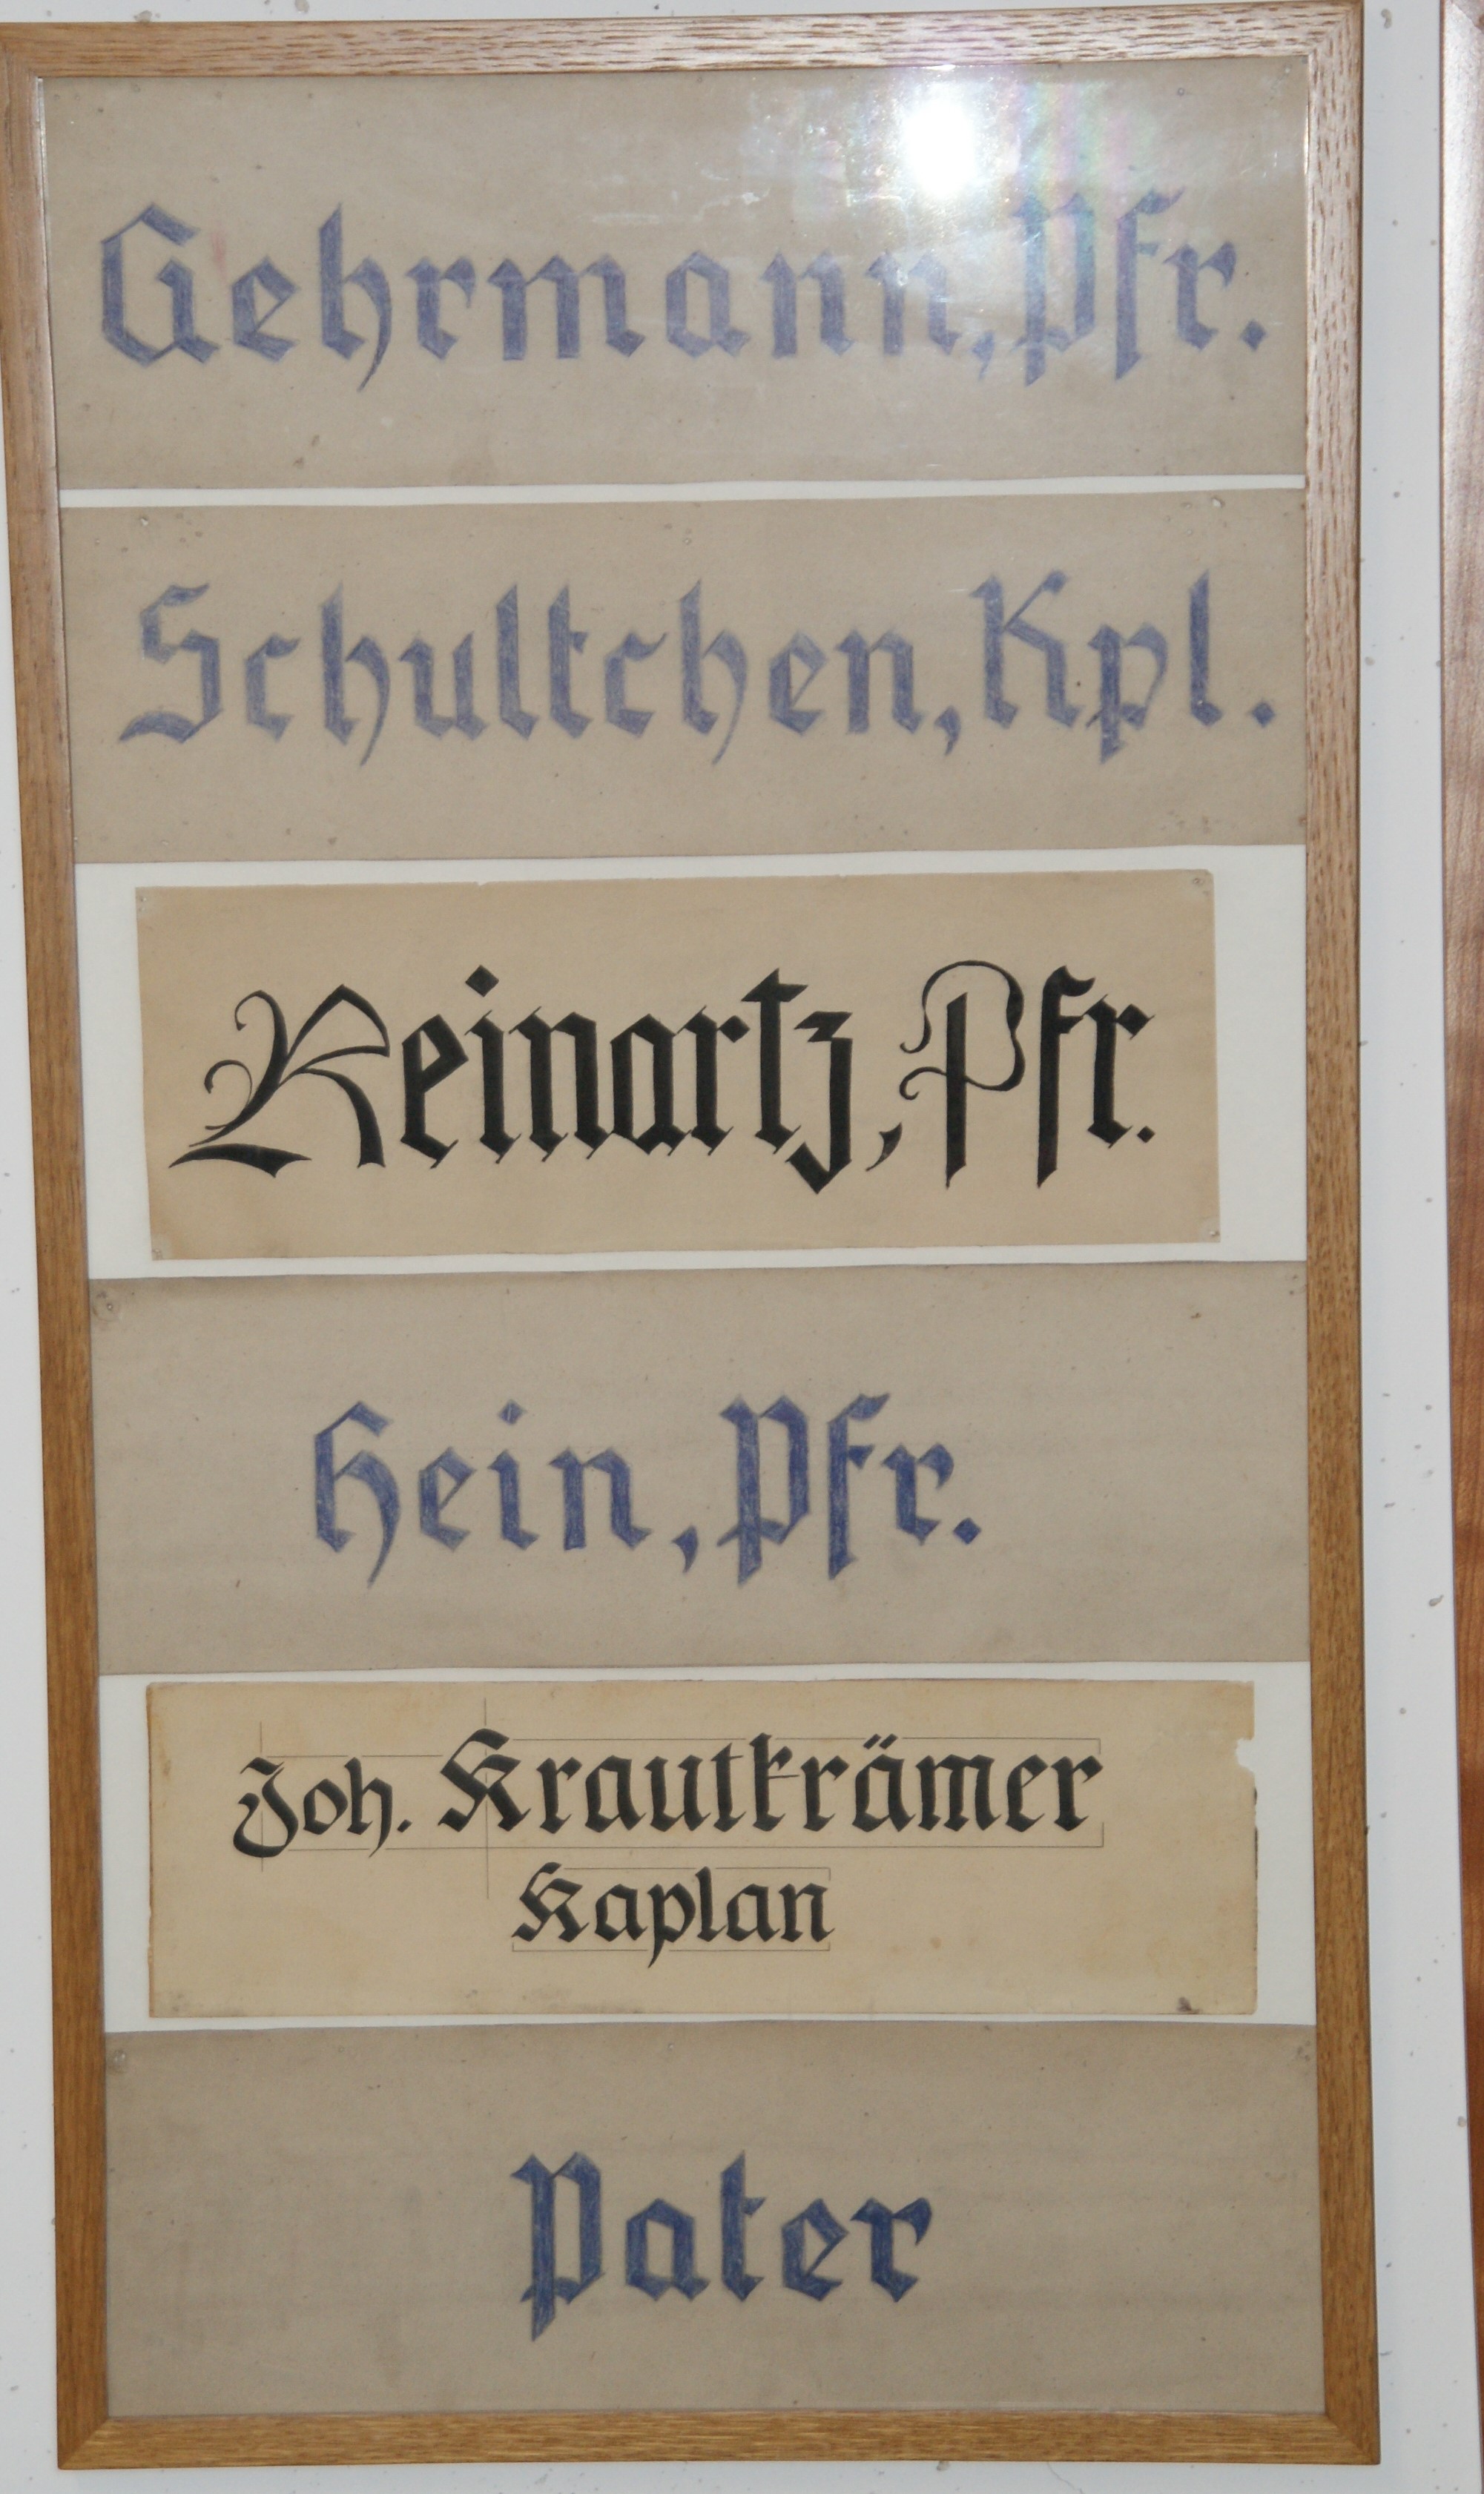 Gehrmann, Pfr.
Schultchen, Kpl.
Reinartz, Pfr.
Hein, Pfr.
Joh. Krautkrämer
Kaplan
Pater